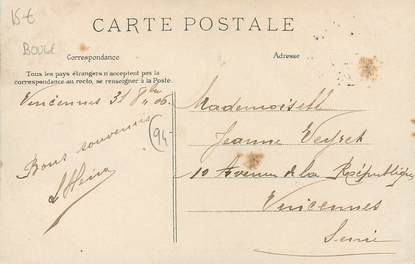 15€
BOULE
CARTE POSTALE
Correspondance
Adresse
Tous les pays étrangers n'acceptent pas la
correspondance au recto, se renseigner à la Poste.
Vincennes 31 8bre 06
Bons souvenirs
94-
Mademoiselle
Jeanne Veyret
10 Avenue de la République
Vincennes
Seine